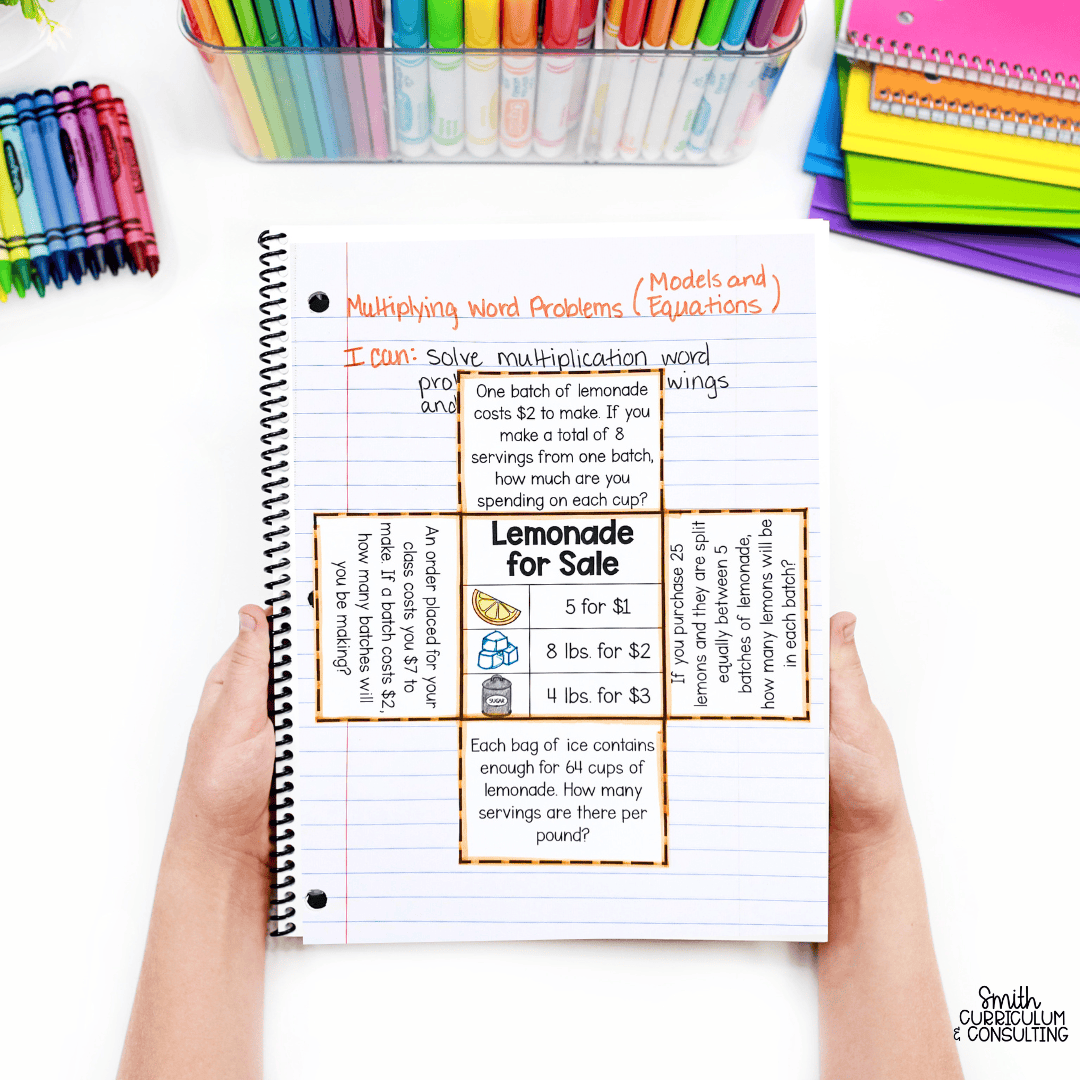 Multiplying Word Problems (Models and Equations)
I can: Solve multiplication word
wings
and
One batch of lemonade
costs $2 to make. If you
make a total of 8
servings from one batch,
how much are you
spending on each cup?
An order placed for your
class costs you $7 to
make. If a batch costs $2,
how many batches will
you be making?
Lemonade
for Sale
5 for $1
8 lbs. for $2
SUGAR
4 lbs. for $3
If you purchase 25
lemons and they are split
equally between 5
batches of lemonade,
how many lemons will be
in each batch?
Each bag of ice contains
enough for 64 cups of
lemonade. How many
servings are there per
pound?
Smith
CURRICULUM
& CONSULTING